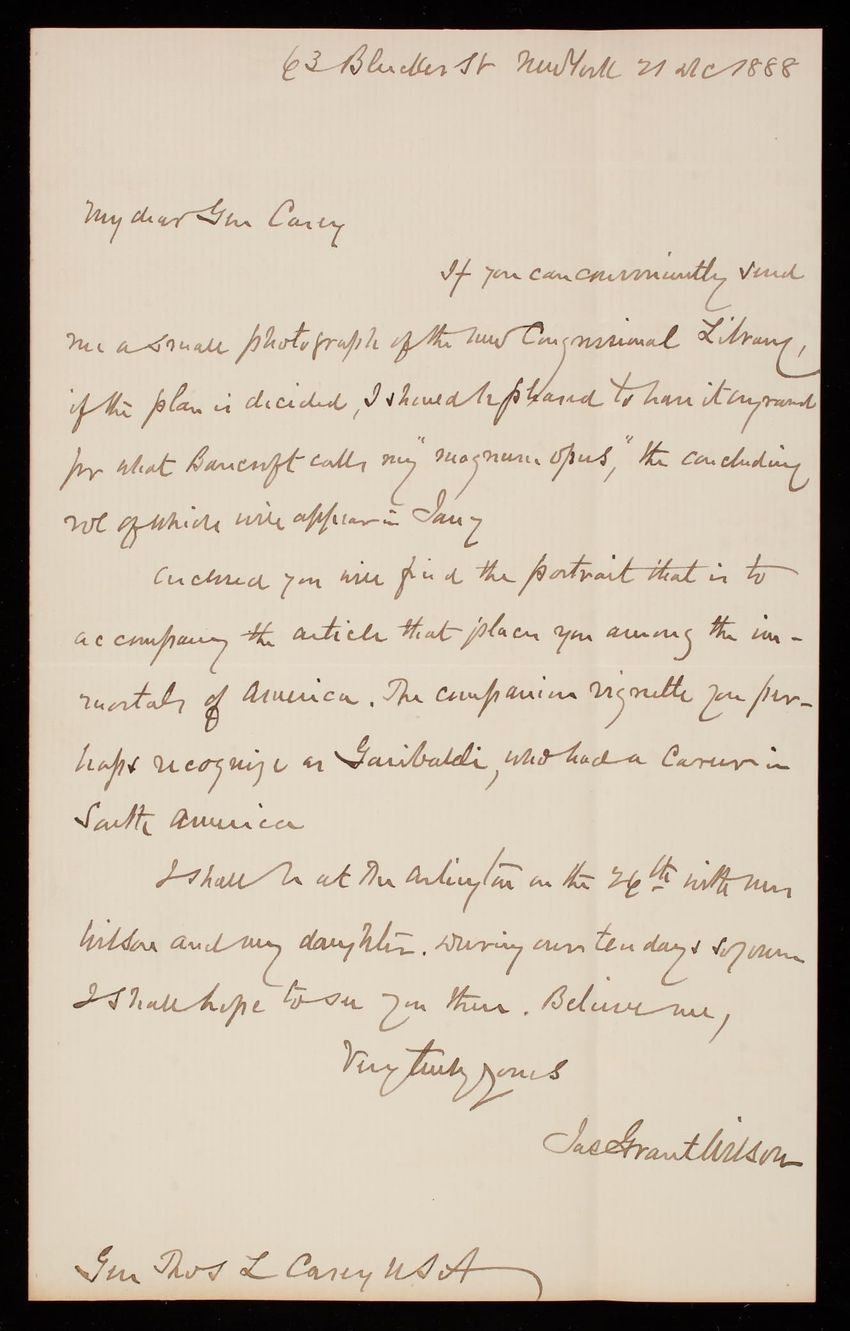 63 Bleecker St New York 21 Dec 1888
My dear Gen Casey
If you can conveniently send
me a small photograph of the new Congressional Library,
if the plan is decided, I should be pleased to have it engraved
for what Bancroft calls my "magnum opus," the concluding
vol of which will appear in Jany
Enclosed you will find the portrait that is to
accompany the article that places you among the im-
mortals of America. The companion vignette you per-
haps recognize as Garibaldi, who had a career in
South America
I shall be at The Arlington on the 26th with Mrs
Wilson and my daughter. During our ten days sojourn
I shall hope to see you there. Believe me,
Very truly yours
Jas Grant Wilson
Gen Thos L Casey USA